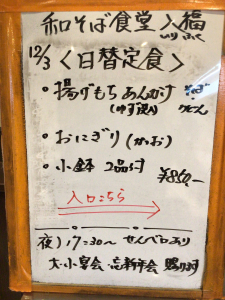 和そば食堂 入福
いりふく
12/3 〈日替定食〉
・揚げもち あんかけ そば
(ゆず入) うどん
・おにぎり (かつお)
・小鉢 2品付
¥850,-
入口こちら
夜) 17:30〜 せんべろあり
大・小宴会 忘新年会 賜ります